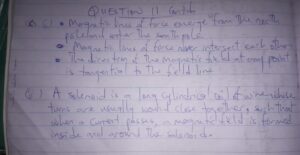 QUESTION 11 Contd
6 c) • Magnetic lines of force emerge from the north
pole and enter the south pole
• Magnetic lines of force never intersect each other
• The direction of the magnetic field at any point
is tangential to the field line
A solenoid is a long cylindrical coil of wire whose
turns are usually wound close together, such that
when a current passes, a magnetic field is formed
inside and around the solenoid.